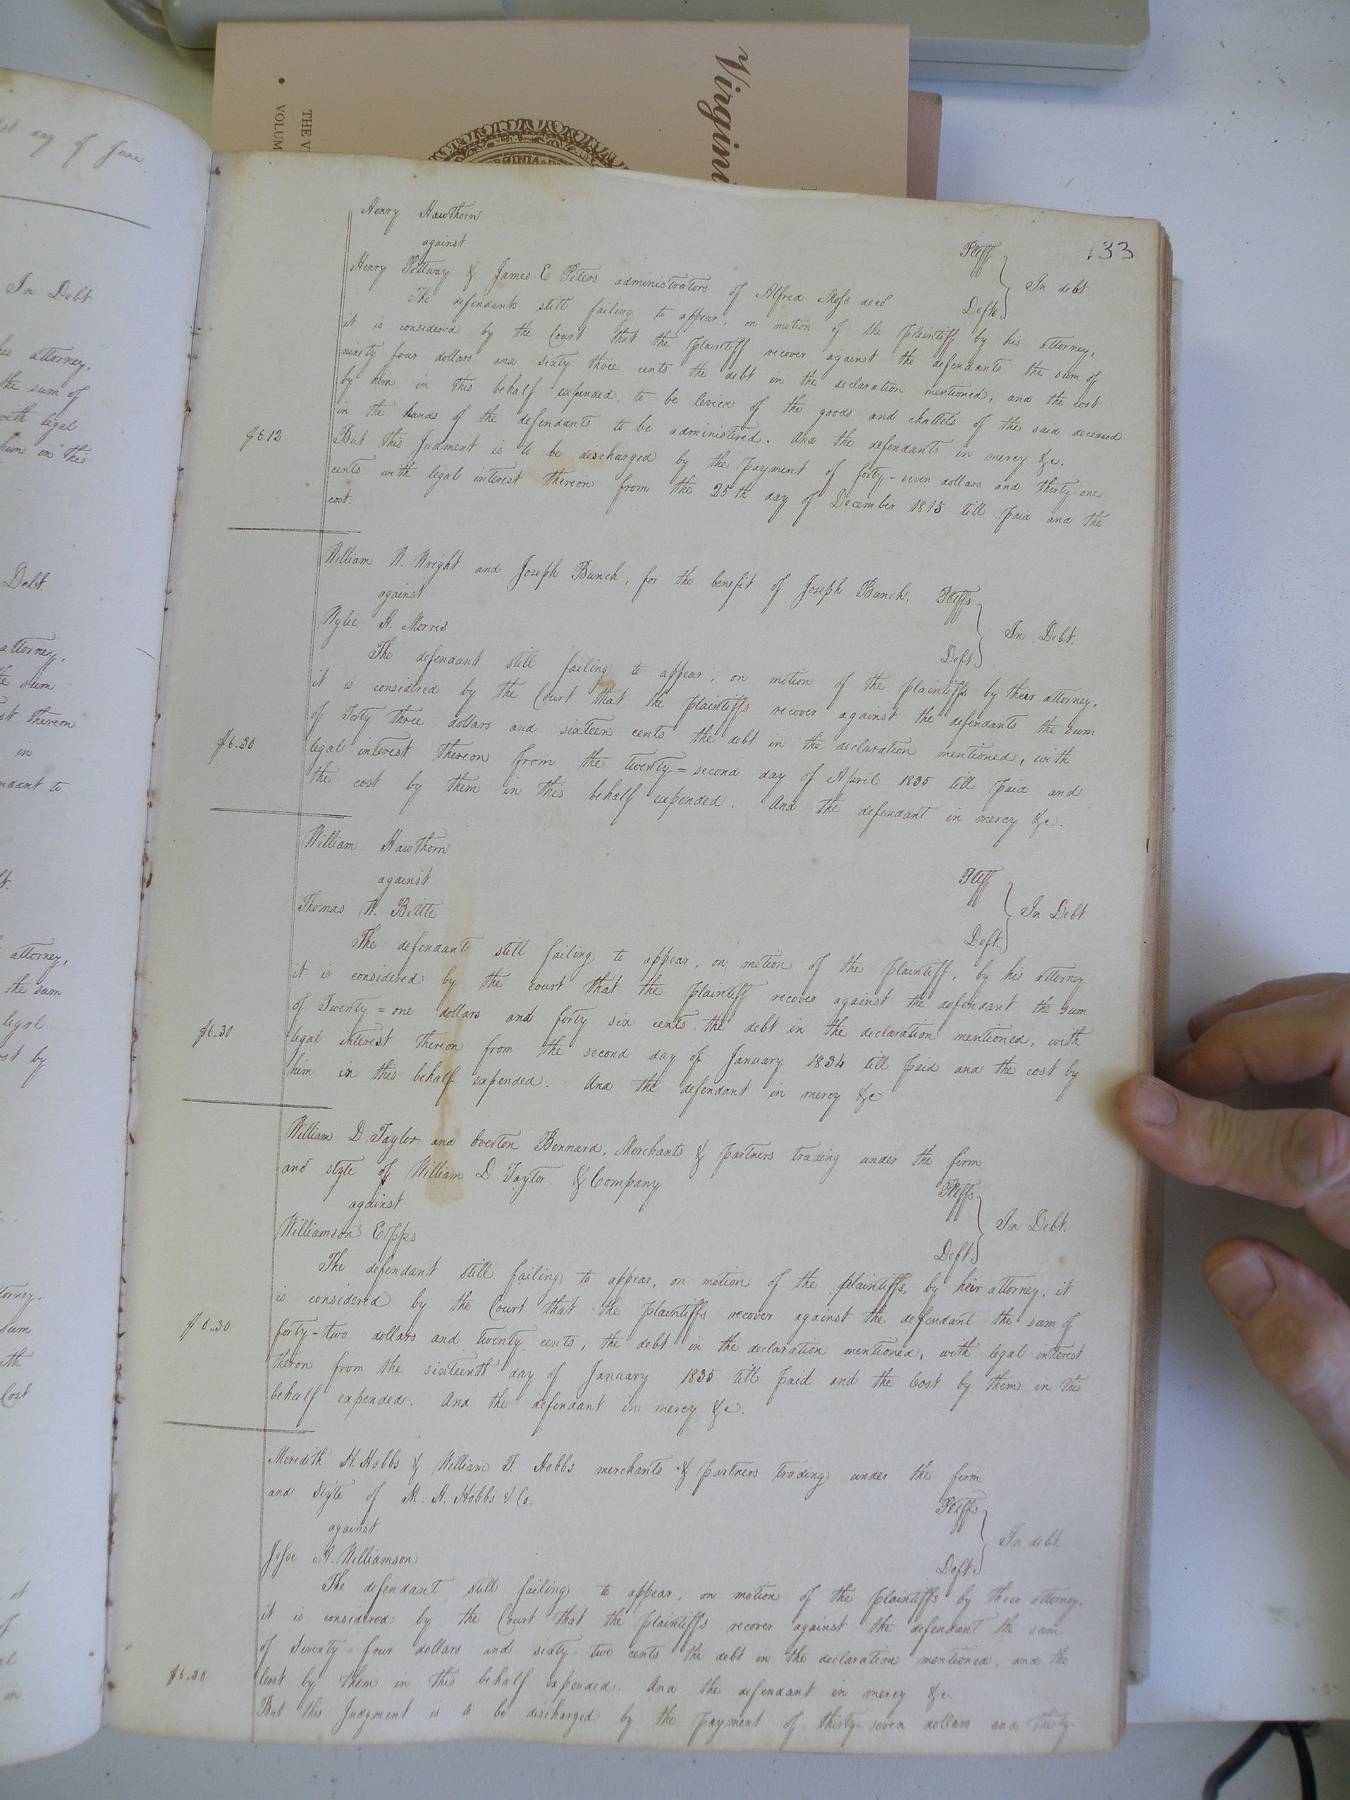 Virgini
THE V
VOLUM
133
Henry Hawthorn Pltff
against In debt
Henry Pettway & James E Peters administrators of Alfred Moss decd Defts.
The defendants still failing to appear, on motion of the plaintiff by his attorney,
it is considered by the Court that the plaintiff recover against the defendants the sum of
ninety four dollars and sixty three cents the debt in the declaration mentioned, and the cost
by him in this behalf expended, to be levied of the goods and chattels of the said deceased
in the hands of the defendants to be administered. And the defendants in mercy &c.
$6.12 But this Judment is to be discharged by the payment of forty-seven dollars and thirty-one
cents with legal interest thereon from the 25th day of December 1815 till paid and the
cost.
William W. Wright and Joseph Bunch, for the benefit of Joseph Bunch. Pltffs
against In Debt.
Wylie H. Morris Deft
The defendant still failing to appear, on motion of the plaintiffs by their attorney,
it is considered by the Court that the plaintiffs recover against the defendants the sum
of Forty three dollars and sixteen cents the debt in the declaration mentioned, with
$6.30 legal interest thereon from the twenty=second day of April 1835 till paid and
the cost by them in this behalf expended. And the defendant in mercy &c.
William Hawthorn Pltff
against In Debt
Thomas W. Bittle Deft.
The defendant still failing to appear, on motion of the plaintiff, by his attorney
it is considered by the court that the plaintiff recover against the defendant the sum
of Twenty=one dollars and forty six cents the debt in the declaration mentioned, with
$6.30 legal interest thereon from the second day of January 1834 till paid and the cost by
him in this behalf expended. And the defendant in mercy &c
William D Taylor and Overton Bennard, Merchants & partners trading under the firm
and style of William D Taylor & Company Pltffs
against In Debt.
Williamson Epps Deft
The defendant still failing to appear, on motion of the plaintiffs, by heir attorney, it
is considered by the Court that the plaintiffs recover against the defendant the sum of
$6.30 forty-two dollars and twenty cents, the debt in the declaration mentioned, with legal interest
theron from the sixteenth day of January 1835 till paid and the Cost by them in this
behalf expended. And the defendant in mercy &c.
Meredith H. Hobbs & William F. Hobbs merchants & partners trading under the firm
and style of M. H. Hobbs & Co. Pltffs
against In debt.
Jesse A. Williamson Deft.
The defendant still failing to appear, on motion of the plaintiffs by their attorney,
it is considered by the Court that the plaintiffs recover against the defendant the sum
of Seventy-four dollars and sixty-two cents the debt in the declaration mentioned, and the
$6.30 Cost by them in this behalf expended. And the defendant in mercy &c
But this Judgment is to be discharged by the payment of thirty-seven dollars and thirty-